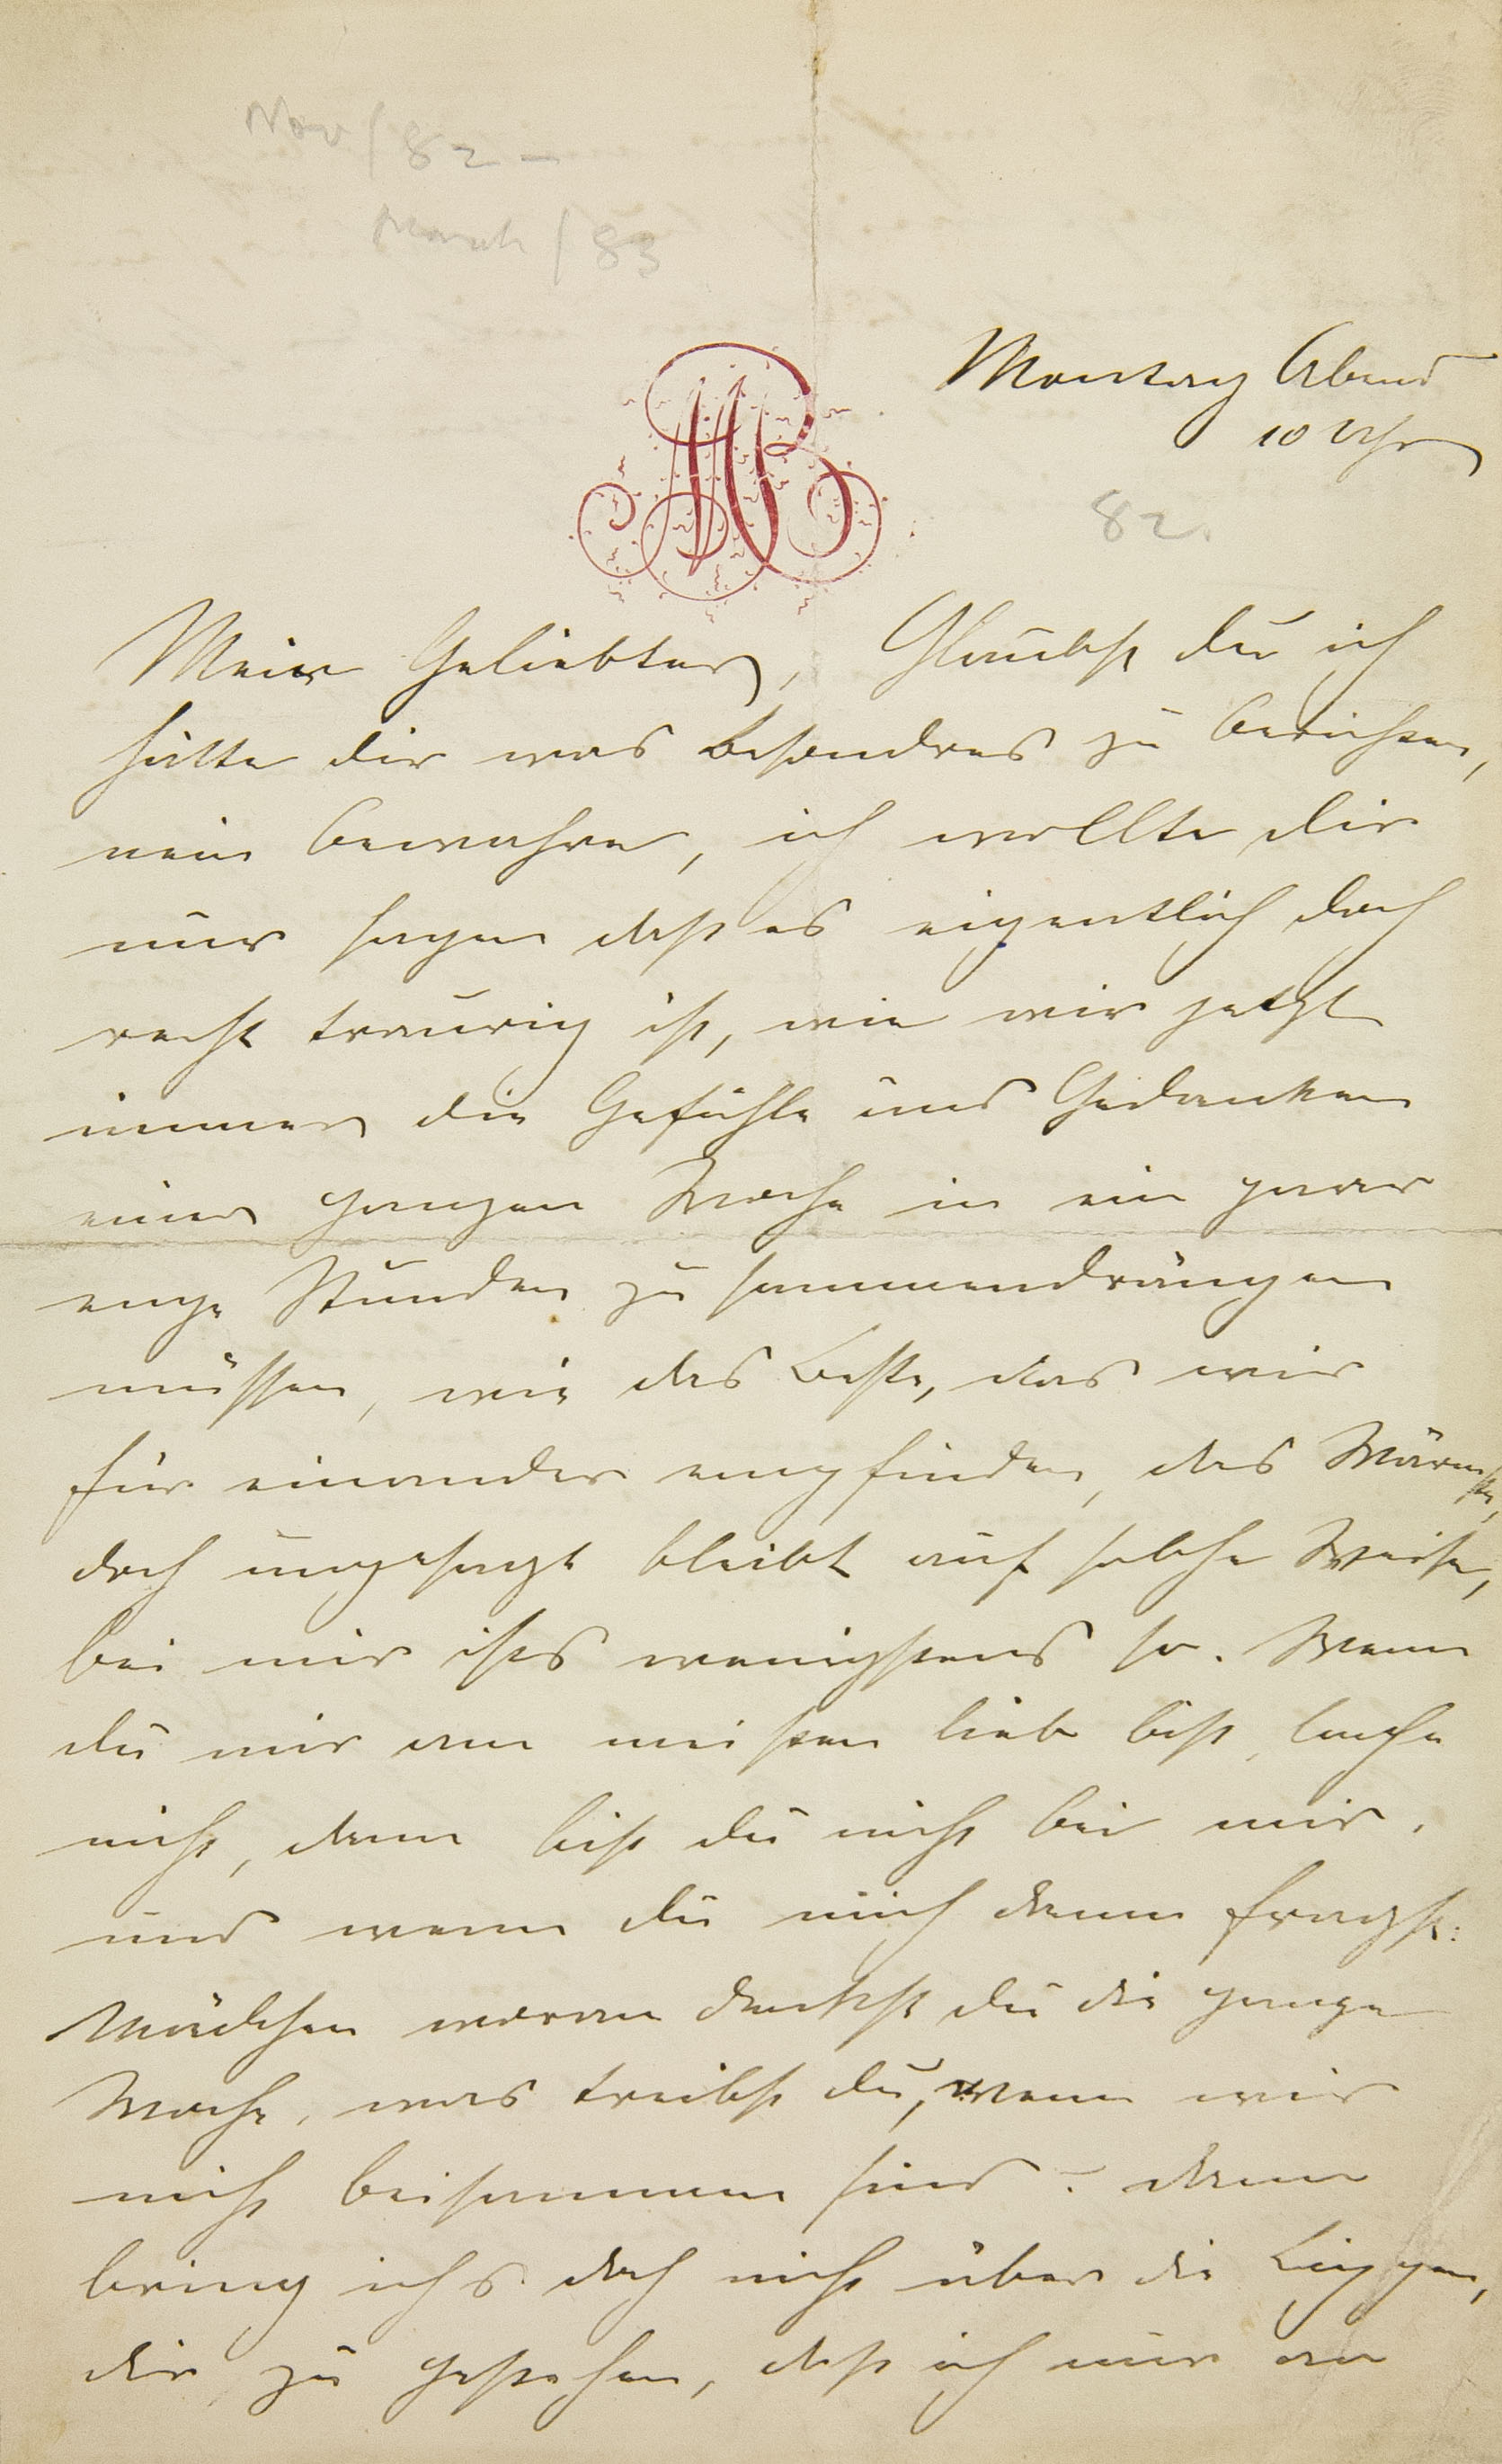 Nov / 82 –
March / 83
Montag Abend
10 Uhr
82.
Mein Geliebter, Glaubst du ich
hätte dir was Besondres zu berichten,
nein bewahre, ich wollte dir
nur sagen daß es eigentlich doch
recht traurig ist, wie wir jetzt
immer die Gefühle und Gedanken
einer ganzen Woche in ein paar
enge Stunden zu sammendrängen
müssen, wie das Beste, das wir
für einander empfinden, das Wärmste,
doch ungesagt bleibt auf solche Weise,
bei mir ists wenigstens so. Wenn
du mir am meisten lieb bist, lache
nicht, dann bist du nicht bei mir.
und wenn du mich dann fragst:
Mädchen woran denkst du die ganze
Woche, was treibst du, wenn wir
nicht beisammen sind? dann
bring ichs doch nicht über die Lippen,
dir zu gestehen, daß ich nur an